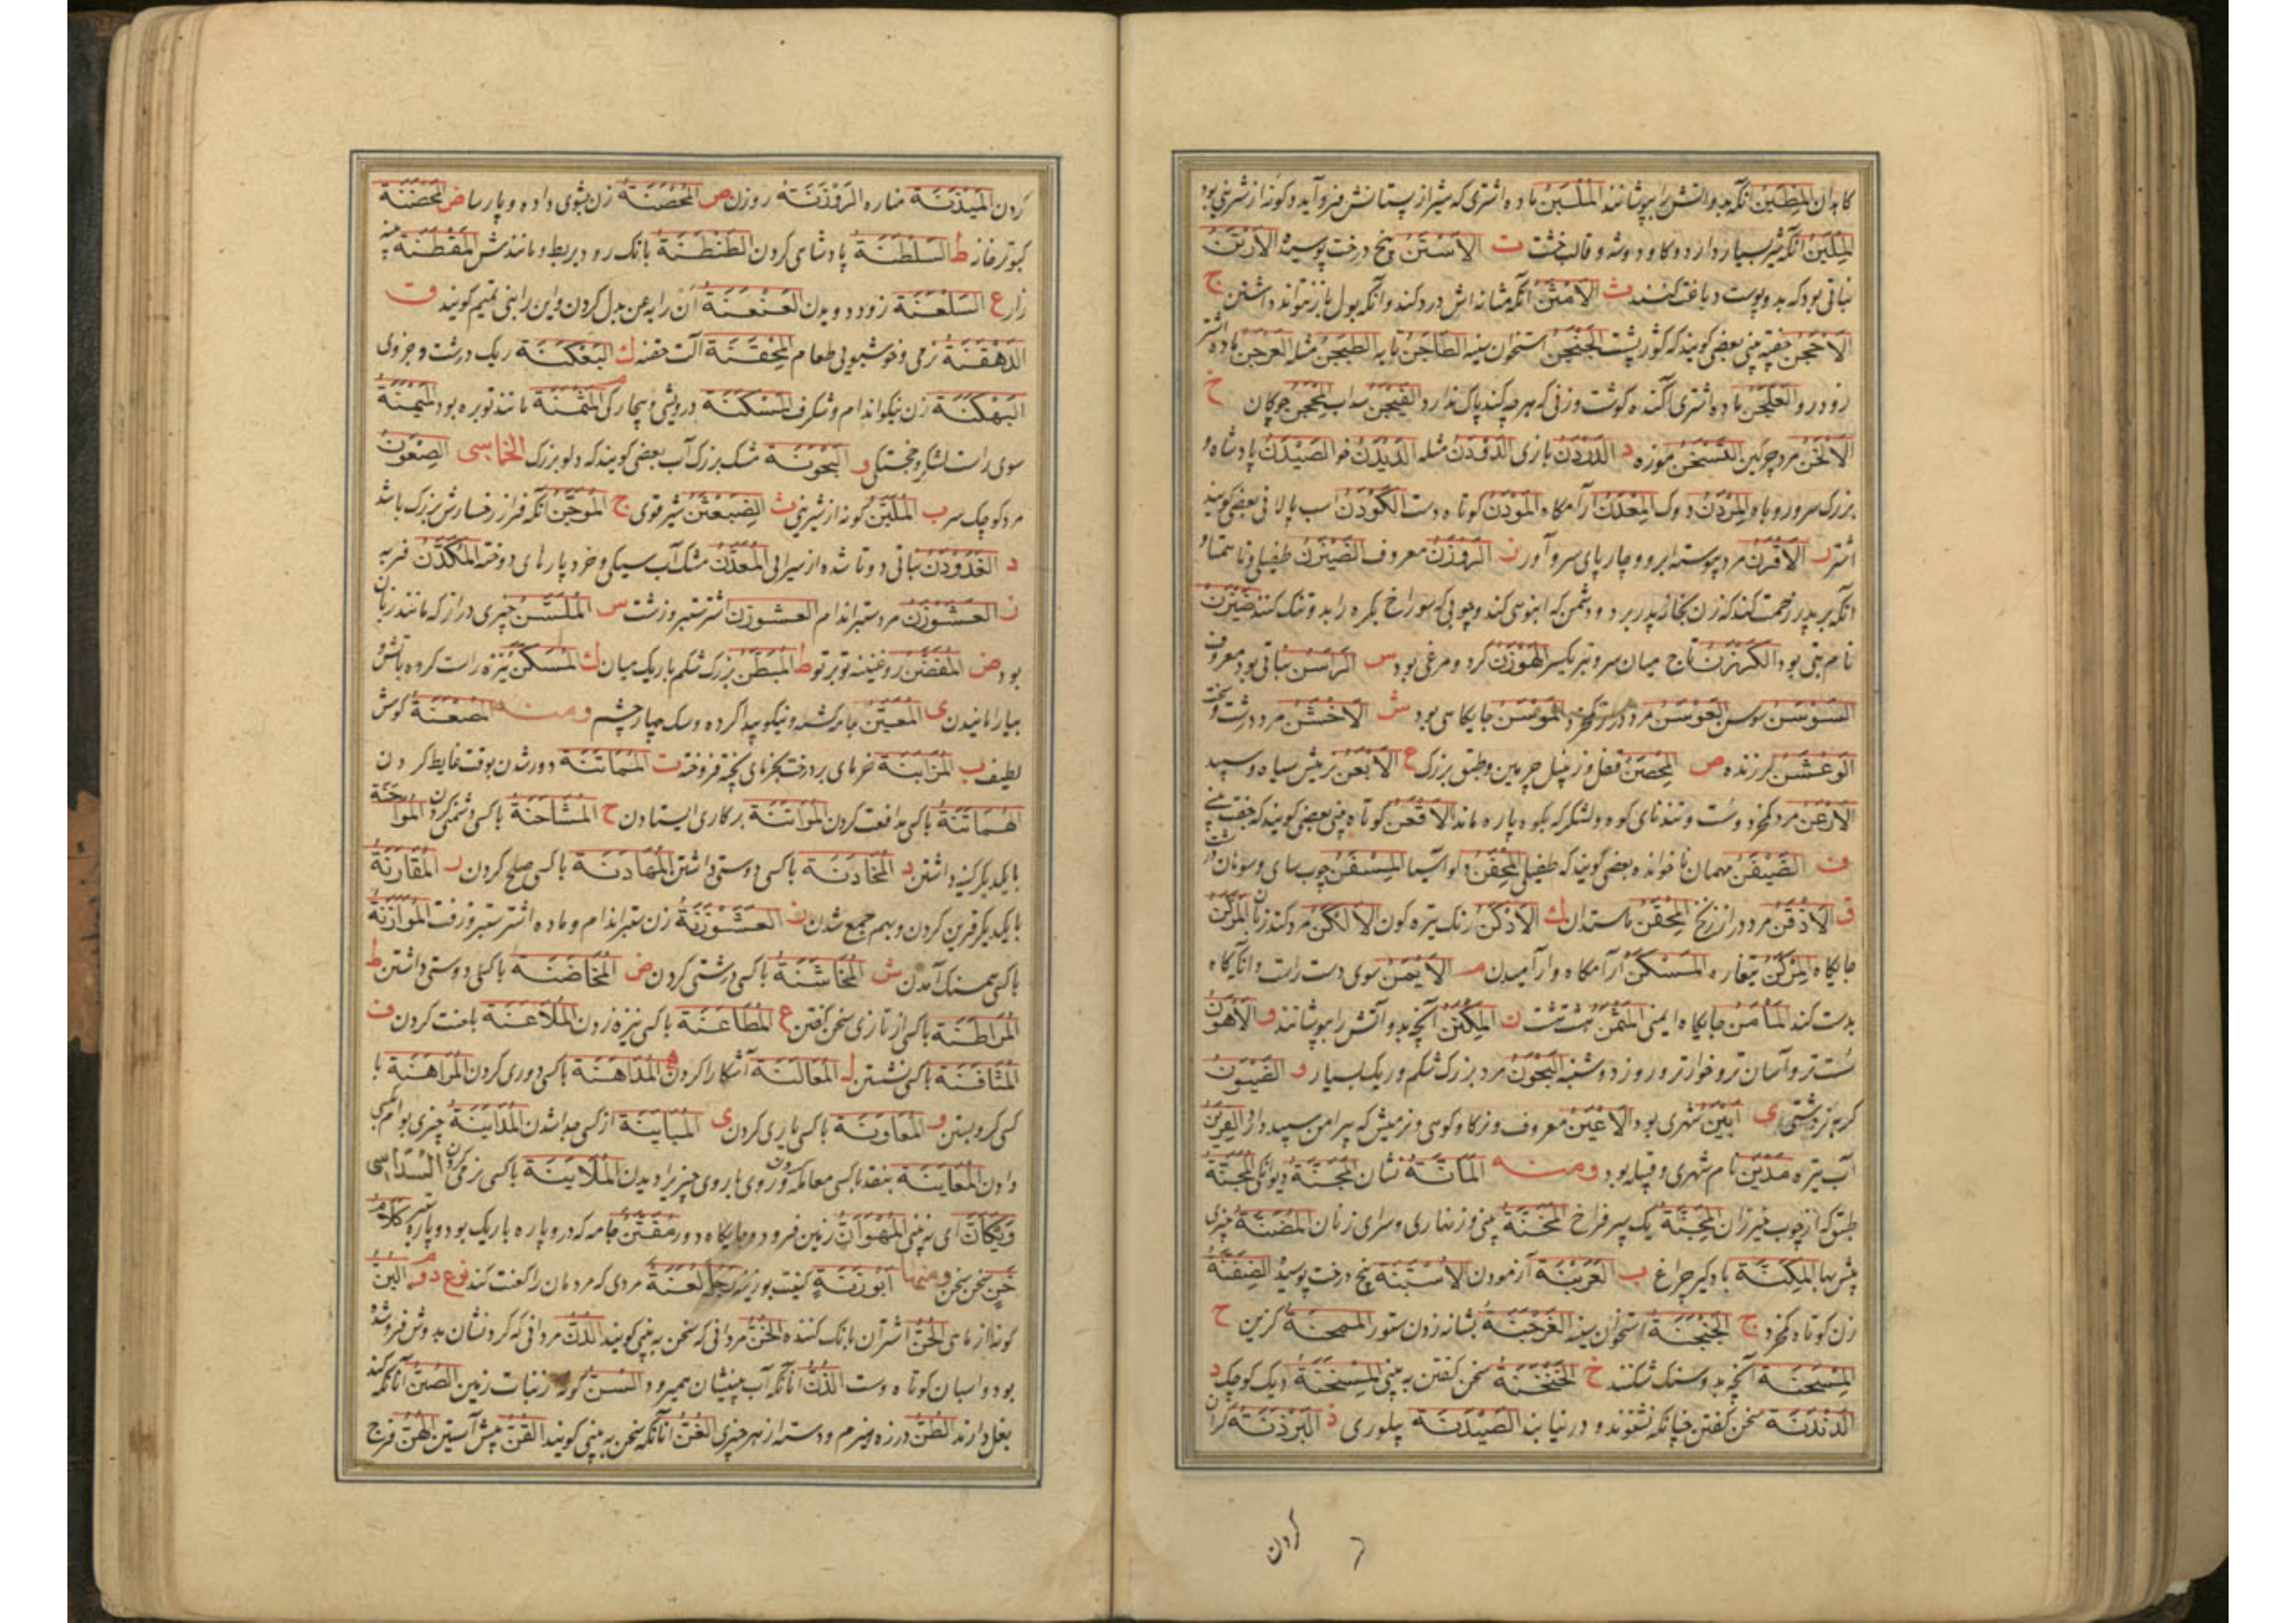 کاهدان المِطْبَنُ آنکه بدو آتش را بپوشانند المُلْبِنُ ماده اشتری که شیر از پستانش فرو آید و کونه از شرینی بود
المِلْبَنُ آنکه شیر بسیار دارد و کاو دوشه و قالب خشت ت الاَسْتَنُ بیخ درخت پوسیده الاَرْتَنُ
نباتی بود که بدو پوست دباغت کنند ث الاَمْثَنُ آنکه مثانه اش درد کند و آنکه بول باز نتواند داشتن ج
الاَحْجَنُ خفته بینی بعضی گویند که کوژ پشت الجَنْجَنُ استخوان سینه الطَّاجَنُ تابه الطَّیْجَنُ مثله العَرْجَنُ ماده اشتر
زودرو العَلْجَنُ ماده اشتری آکنده کوشت و زنی که هر چه کند پاک ندارد الفَیْجَنُ سداب المِحْجَنُ چوکان خ
الاَلْخَنُ مرد چرکین التَّسْخَنُ موزه د الدَّدَنُ بازی الدَّوْدَنُ مثله الدَّیْدَنُ خو الصَّیْدَنُ پادشاه و
بزرک سرور و باه المِرْدَنُ دوک المَعْدِنُ آرامکاه المُوْدَنُ کوتاه دست الکَوْدَنُ اسب پالانی بعضی گویند
اشتر ر الاَقْرَنُ مرد پیوسته ابرو و چارپای سروآور ز الرَّوْزَنُ معروف الضَّیْزَنُ طفیلی و ناهمتا و
آنکه بر پدر زحمت کند که زن بخانه پدر برد و دشمن که انبوهی کند و چوبی که سوراخ بکره را بدو تنک کنند ضَیْزَنُ
نام بتی بود الکَرْزَنُ تاج میان سر و تبر یکسر الهَوْزَنُ کرد و مرغی بود س الرَّاسَنُ نباتی بود معروف
السَّوْسَنُ سوسن العَوْسَنُ مرد دراز المَوْسِنُ جایکاهی بود ش الاَخْشَنُ مرد درشت و سخت
الوَعْشَنُ لرزنده ص المِحْصَنُ قفل و زنبیل چرمین و طبق بزرک ع الاَبْعَنُ نر میش سیاه و سپید
الاَرْعَنُ مرد کم خرد و سست و تندنای کوه و لشکر که بکوه پاره ماند الاَقْعَنُ کوتاه بینی بعضی گویند که خفته بینی
ف الضَّیْفَنُ مهمان ناخوانده بعضی گویند که طفیلی المِحْفَنُ دلو آسیا المِسْفَنُ چوب سای و سوهان درشت
ق الاَذْقَنُ مرد دراز زنخ المِحْقَنُ ماستدان ك الاَدْکَنُ رنک تیره کون الاَلْکَنُ مرد کند زبان المَرْکَنُ
جایکاه المِرْکَنُ تغاره المَسْکَنُ آرامکاه و آرامیدن م الاَیْمَنُ سوی دست راست و آنکه کاه
بدست کند المَأْمَنُ جایکاه ایمنی المُثَمَّنُ هشت هشت ن المِکْنَنُ آنچه بدو آتش را بپوشانند و الاَهْوَنُ
سست تر و آسان تر و خوارتر و روز دوشنبه البَحْوَنُ مرد بزرک شکم و ریک بسیار و الضَّیْوَنُ
کربه نر دشتی ی اَبْیَنُ شهری بود الاَعْیَنُ معروف و نر کاو کوهی و نر میش که پیرامن سپید دارد الغِرْیَنُ
آب تیره مَدْیَنُ نام شهری و قبیله بود ومنه المَانَّةُ نشان المَجَنَّةُ دیوانکی المِجَنَّةُ
طبق که از چوب خیزران المِجَنَّةُ یک سپر فراخ المَخَنَّةُ بینی و زنهاری و سرای زنان المَضَنَّةُ چیزی
بیش بها المِکَنَّةُ بادکیر چراغ ب العَرْبَنَةُ آزمودن الاُسْتَنَة بیخ درخت پوسیده الضِّفَنَّةُ
زن کوتاه کم خرد ج الجِنْجِنَةُ استخوان سینه الفَرْجَنَةُ بشانه زدن ستور المِسْجَنَةُ کزین ح
المِسْحَنَة آنچه بدو سنک شکنند خ الخَنْخَنَةُ سخن کفتن به بینی المِسْخَنَةُ دیک کوچک د
الدَّنْدَنَة سخن کفتن چنانکه نشنوند و در نیابند الصَّیْدَنَة پیلوری ذ البَرْذَنَة کران
کردن
کردن المِیْذَنَة مناره الرَّوْزَنَةُ روزن ص المُحْصَنَةُ زن بشوی داده و پارسا ض المِحْضَنَة
کبوترخانه ط السَّلْطَنَةُ پادشاهی کردن الطَّنْطَنَةُ بانک رود بربط و مانندش المَقْطَنَةُ پنبه
زار ع السَّلْعَنَة زود دویدن العَنْعَنَة ان را به عن بدل کردن و این را بنی تمیم کویند ق
الدَّهْقَنَة نرمی و خوشبویی طعام المِحْقَنَة آلت حقنه ك البَعْکَنَة ریک درشت و چیزی
البَهْکَنَة زن نیکو اندام و شکرف المَسْکَنَة درویشی و بیچارکی م المِثْمَنَة مانند توبره بود المَیْمَنَة
سوی راست لشکر و خجستکی و البَحْوَنَة مشک بزرک آب بعضی کویند که دلو بزرک الخماسی الصِّعْوَنُّ
مرد کوچک سر ب المُلَبَّنُ کونه از شیرینی ث الضَّبَعْثَنُ شیر قوی ج المُوَجَّنُ آنکه فراز رخسارش بزرک باشد
د الغَدَوْدَنُ نباتی دوتا شده از سیرابی المُعَدَّنُ مشک آب سپیکی و خرد پارهای دوخته المُکَدَّنُ فربه
ز العَشَوْزَنُ مرد ستبراندام العشوزن اشتر ستبر و زشت س المُلَسَّنُ چیزی دراز که مانند زبان
بود ض المُغَضَّنُ روغنینه تو بر تو ط المُبَطَّنُ بزرک شکم باریک میان ك المُسَکَّنُ نیزه راست کرده باتش و
بیارامانیدن ی المُعَیَّنُ جامه کشته و نیکو پیدا کرده و سک چهار چشم ومنه المُصَعْنَةُ کوش
لطیف ب المُزَابَنَةُ خرمای بر درخت بخرمای پخته فروخته ت المُمَاتَنَة دور شدن بوقت غایط کردن
المُمَاتَنَةُ باکسی مدافعت کردن المُوَاتَنَة بر کاری ایستادن ح المُشَاحَنَةُ باکسی دشمنی کردن المُوَاحَنَةُ
بایکدیکر کینه داشتن د المُخَادَنَة باکسی دوستی داشتن المُهَادَنَة باکسی صلح کردن ر المُقَارَنَةُ
بایکدیکر قرین کردن و بهم جمع شدن ز العَشَوْزَنَةُ زن ستبراندام و ماده اشتر ستبر و زفت المُوَازَنَةُ
باکسی همسنک آمدن ش المُخَاشَنَةُ باکسی درشتی کردن ض المُخَاضَنَة باکسی دوستی داشتن ط
المُرَاطَنَة باکسی از تازی سخن کفتن ع المُطَاعَنَة باکسی نیزه زدن المُلَاعَنَة با لعنت کردن ف
المُثَافَنَة باکسی نشستن ل المُعَالَنَة آشکارا کردن ه المُدَاهَنَة باکسی دوری کردن المُرَاهَنَة با
کسی کرو بستن و المُعَاوَنَة باکسی یاری کردن ی المُبَایَنَة از کسی جدا شدن المُدَایَنَةُ چیزی بوام بکسی
دادن المُعَایَنَة بنقد باکسی معامله کردن و روی باروی چیزی را دیدن المُلَایَنَة باکسی نرمی کردن السداسی
وَیْکَانَّ ای نه بینی المُهْوَانُّ زمین فرود و جایکاه دور مُقَتَّنُ جامه که دروپاره باریک بود و پاره ستبر کَلامٌ
خَنٍ سخن سخن ومنها اَبُو زَنَّةَ کنیت بوزینه رَجلُ لُعَنَةٌ مردی که مردمان را لعنت کند نوع دوم البُنُّ
کونه از ماهی الحُنُّ اشتران بانک کننده الخُنُّ مردانی که سخن به بینی کویند الدُّنُّ مردانی که کردنشان بدوش فرو شده
بود و اسبان کوتاه دست الذُّنُّ آنانکه آب بینیشان همیرود السُّنُّ کونه از نبات زمین الصُّنُّ آنانکه کند
بغل دارند الطُّنُّ درزه هیزم و دسته از هر چیزی الغُنُّ آنانکه سخن به بینی کویند القُنُّ پیش آستین الهُنُّ فرج